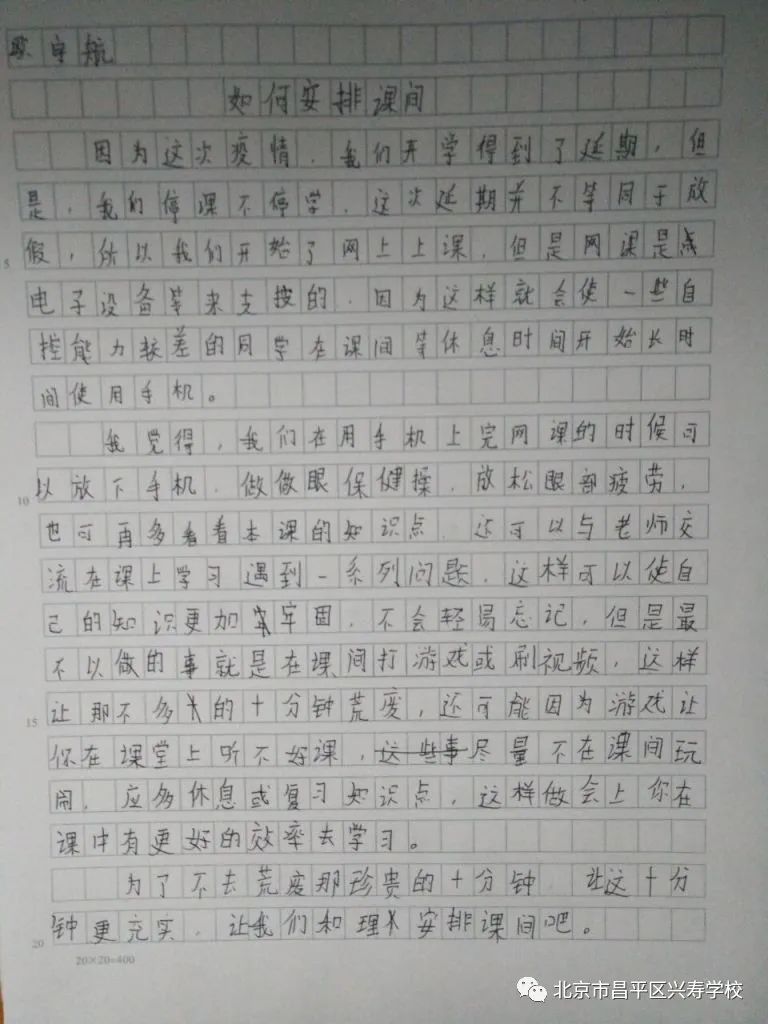 宇航
如何安排课间
因为这次疫情，我们开学得到了延期，但
是，我们停课不停学，这次延期并不等同于放
假，所以我们开始了网上上课，但是网课是点
电子设备等来支按的，因为这样就会使一些自
控能力较差的同学在课间等休息时间开始长时
间使用手机。
我觉得，我们在用手机上完网课的时候可
以放下手机，做做眼保健操，放松眼部疲劳，
也可再多看看本课的知识点，还可以与老师交
流在课上学习遇到一系列问题，这样可以使自
己的知识更加牢固，不会轻易忘记，但是最
不以做的事就是在课间打游戏或刷视频，这样
让那不多的十分钟荒废，还可能因为游戏让
你在课堂上听不好课，这些事尽量不在课间玩
闹，应多休息或复习知识点，这样做会上你在
课中有更好的效率去学习。
为了不去荒废那珍贵的十分钟 让这十分
钟更充实，让我们和理安排课间吧。
5
10
15
20
20×20=400
北京市昌平区兴寿学校